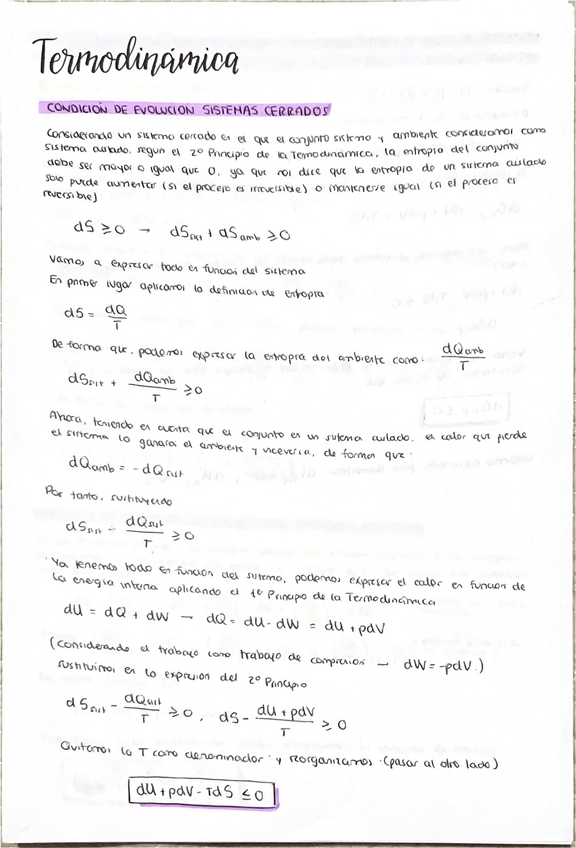 Termodinámica
CONDICIÓN DE EVOLUCIÓN SISTEMAS CERRADOS
Considerando un sistema cerrado en el que el conjunto sistema y ambiente consideramos como
sistema aislado, según el 2º Principio de la Termodinámica, la entropía del conjunto
debe ser mayor o igual que 0, ya que nos dice que la entropía de un sistema aislado
solo puede aumentar (si el proceso es irreversible) o mantenerse igual (si el proceso es
reversible)
dS ≥ 0 → dSsist + dSamb ≥ 0
Vamos a expresar todo en función del sistema
En primer lugar aplicamos la definición de entropía
dS = dQ/T
De forma que, podemos expresar la entropía del ambiente como: dQamb/T
dSsist + dQamb/T ≥ 0
Ahora, teniendo en cuenta que el conjunto es un sistema aislado, el calor que pierde
el sistema lo ganará el ambiente y viceversa, de forma que:
dQamb = - dQsist
Por tanto, sustituyendo
dSsist - dQsist/T ≥ 0
Ya tenemos todo en función del sistema, podemos expresar el calor en función de
la energía interna aplicando el 1º Principio de la Termodinámica
dU = dQ + dW → dQ = dU - dW = dU + pdV
(considerando el trabajo como trabajo de compresión → dW = -pdV.)
sustituimos en la expresión del 2º Principio
dSsist - dQsist/T ≥ 0, dS - dU + pdV/T ≥ 0
Quitamos la T como denominador y reorganizamos (pasar al otro lado)
dU + pdV - TdS ≤ 0